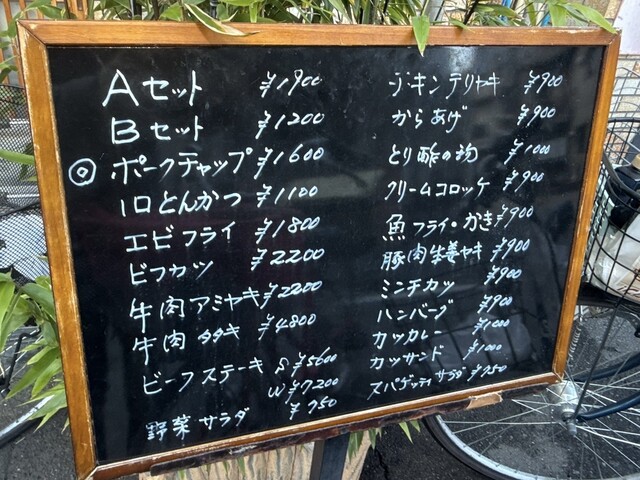 Aセット ¥1900
Bセット ¥1200
◎ポークチャップ ¥1600
一口とんかつ ¥1100
エビフライ ¥1800
ビフカツ ¥2200
牛肉アミヤキ ¥2200
牛肉タタキ ¥4800
ビーフステーキ S ¥5600
W ¥7200
野菜サラダ ¥750
チキンテリヤキ ¥900
からあげ ¥900
とり酢の物 ¥1000
クリームコロッケ ¥900
魚フライ・かき ¥900
豚肉生姜ヤキ ¥900
ミンチカツ ¥900
ハンバーグ ¥900
カツカレー ¥1000
カツサンド ¥1000
スパゲッティサラダ ¥750